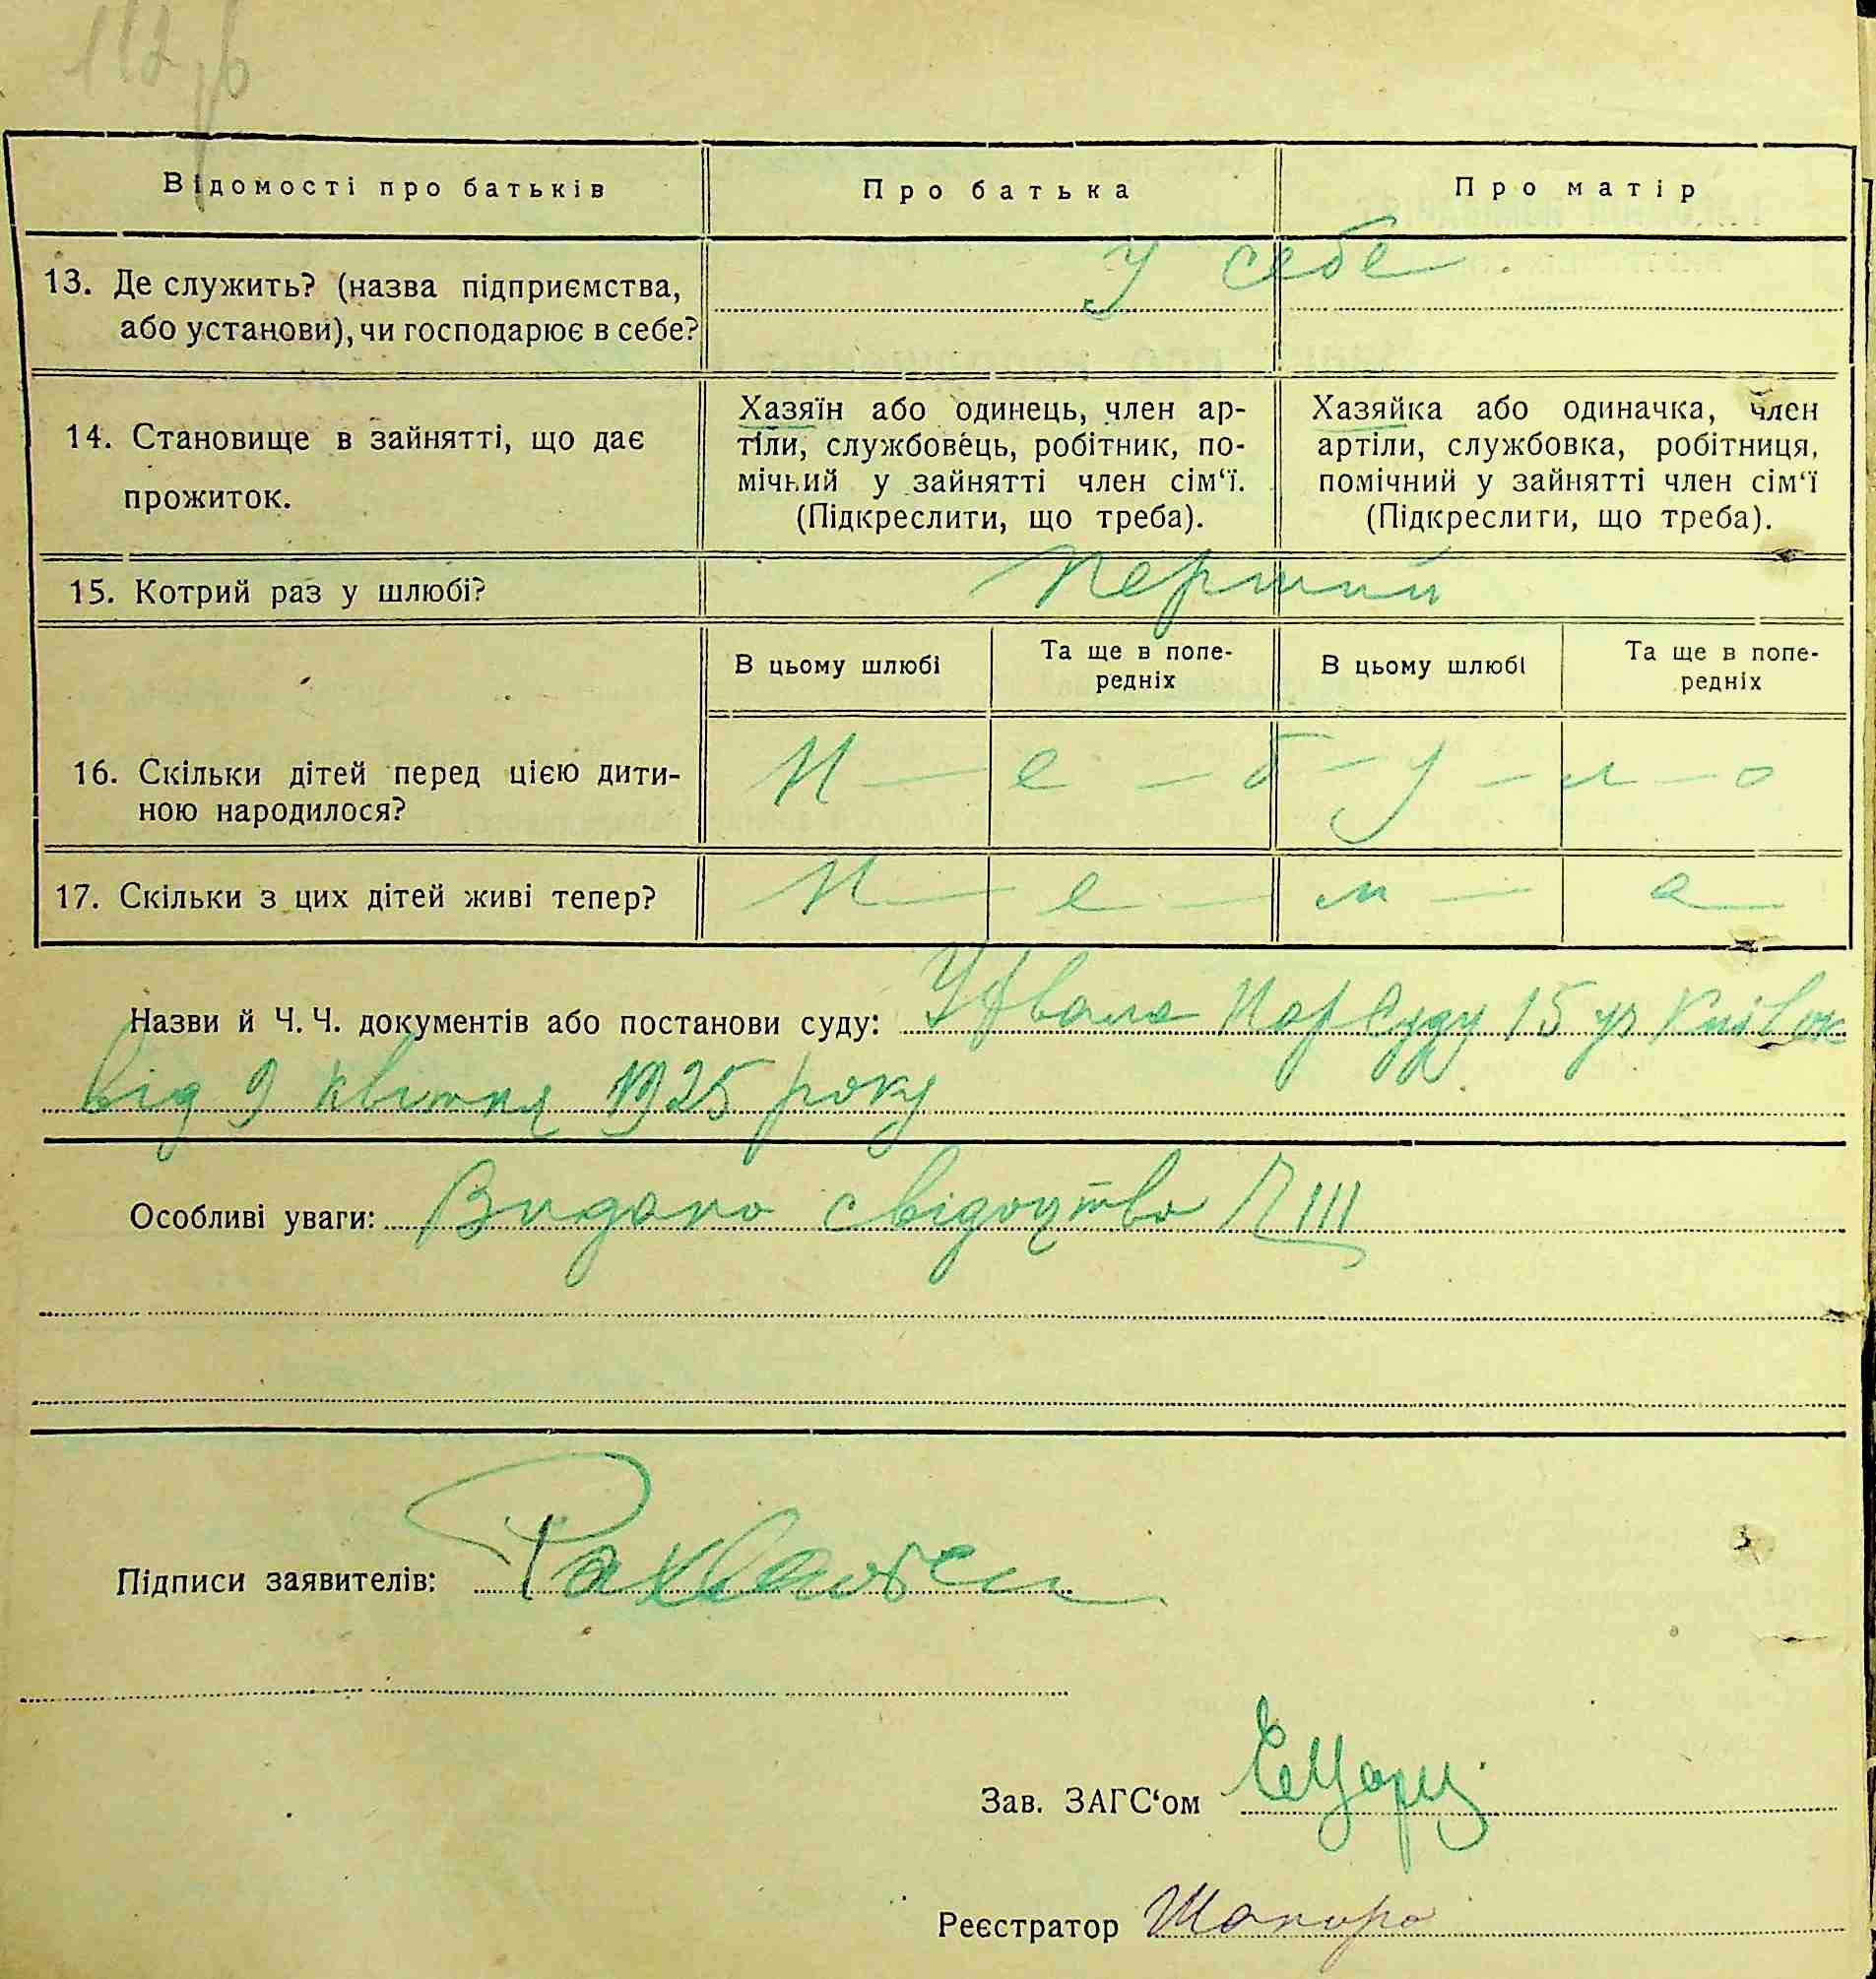 Відомості про батьків
Про батька
Про матір
13. Де служить? (назва підприємства,
або установи), чи господарює в себе?
У себе
14. Становище в зайнятті, що дає
прожиток.
Хазяїн або одинець, член ар-
тіли, службовець, робітник, по-
мічний у зайнятті член сім‘ї.
(Підкреслити, що треба).
Хазяйка або одиначка, член
артіли, службовка, робітниця,
помічний у зайнятті член сім‘ї
(Підкреслити, що треба).
15. Котрий раз у шлюбі?
Перший
В цьому шлюбі
Та ще в попе-
редніх
В цьому шлюбі
Та ще в попе-
редніх
16. Скільки дітей перед цією дити-
ною народилося?
Н — е — б — у — л — о
17. Скільки з цих дітей живі тепер?
Н — е — м — а
Назви й Ч. Ч. документів або постанови суду: Ухвала НарСуду 15
від 9 квітня 1925 року
Особливі уваги: Видано свідоцтво
Підписи заявителів:
Зав. ЗАГС‘ом
Реєстратор